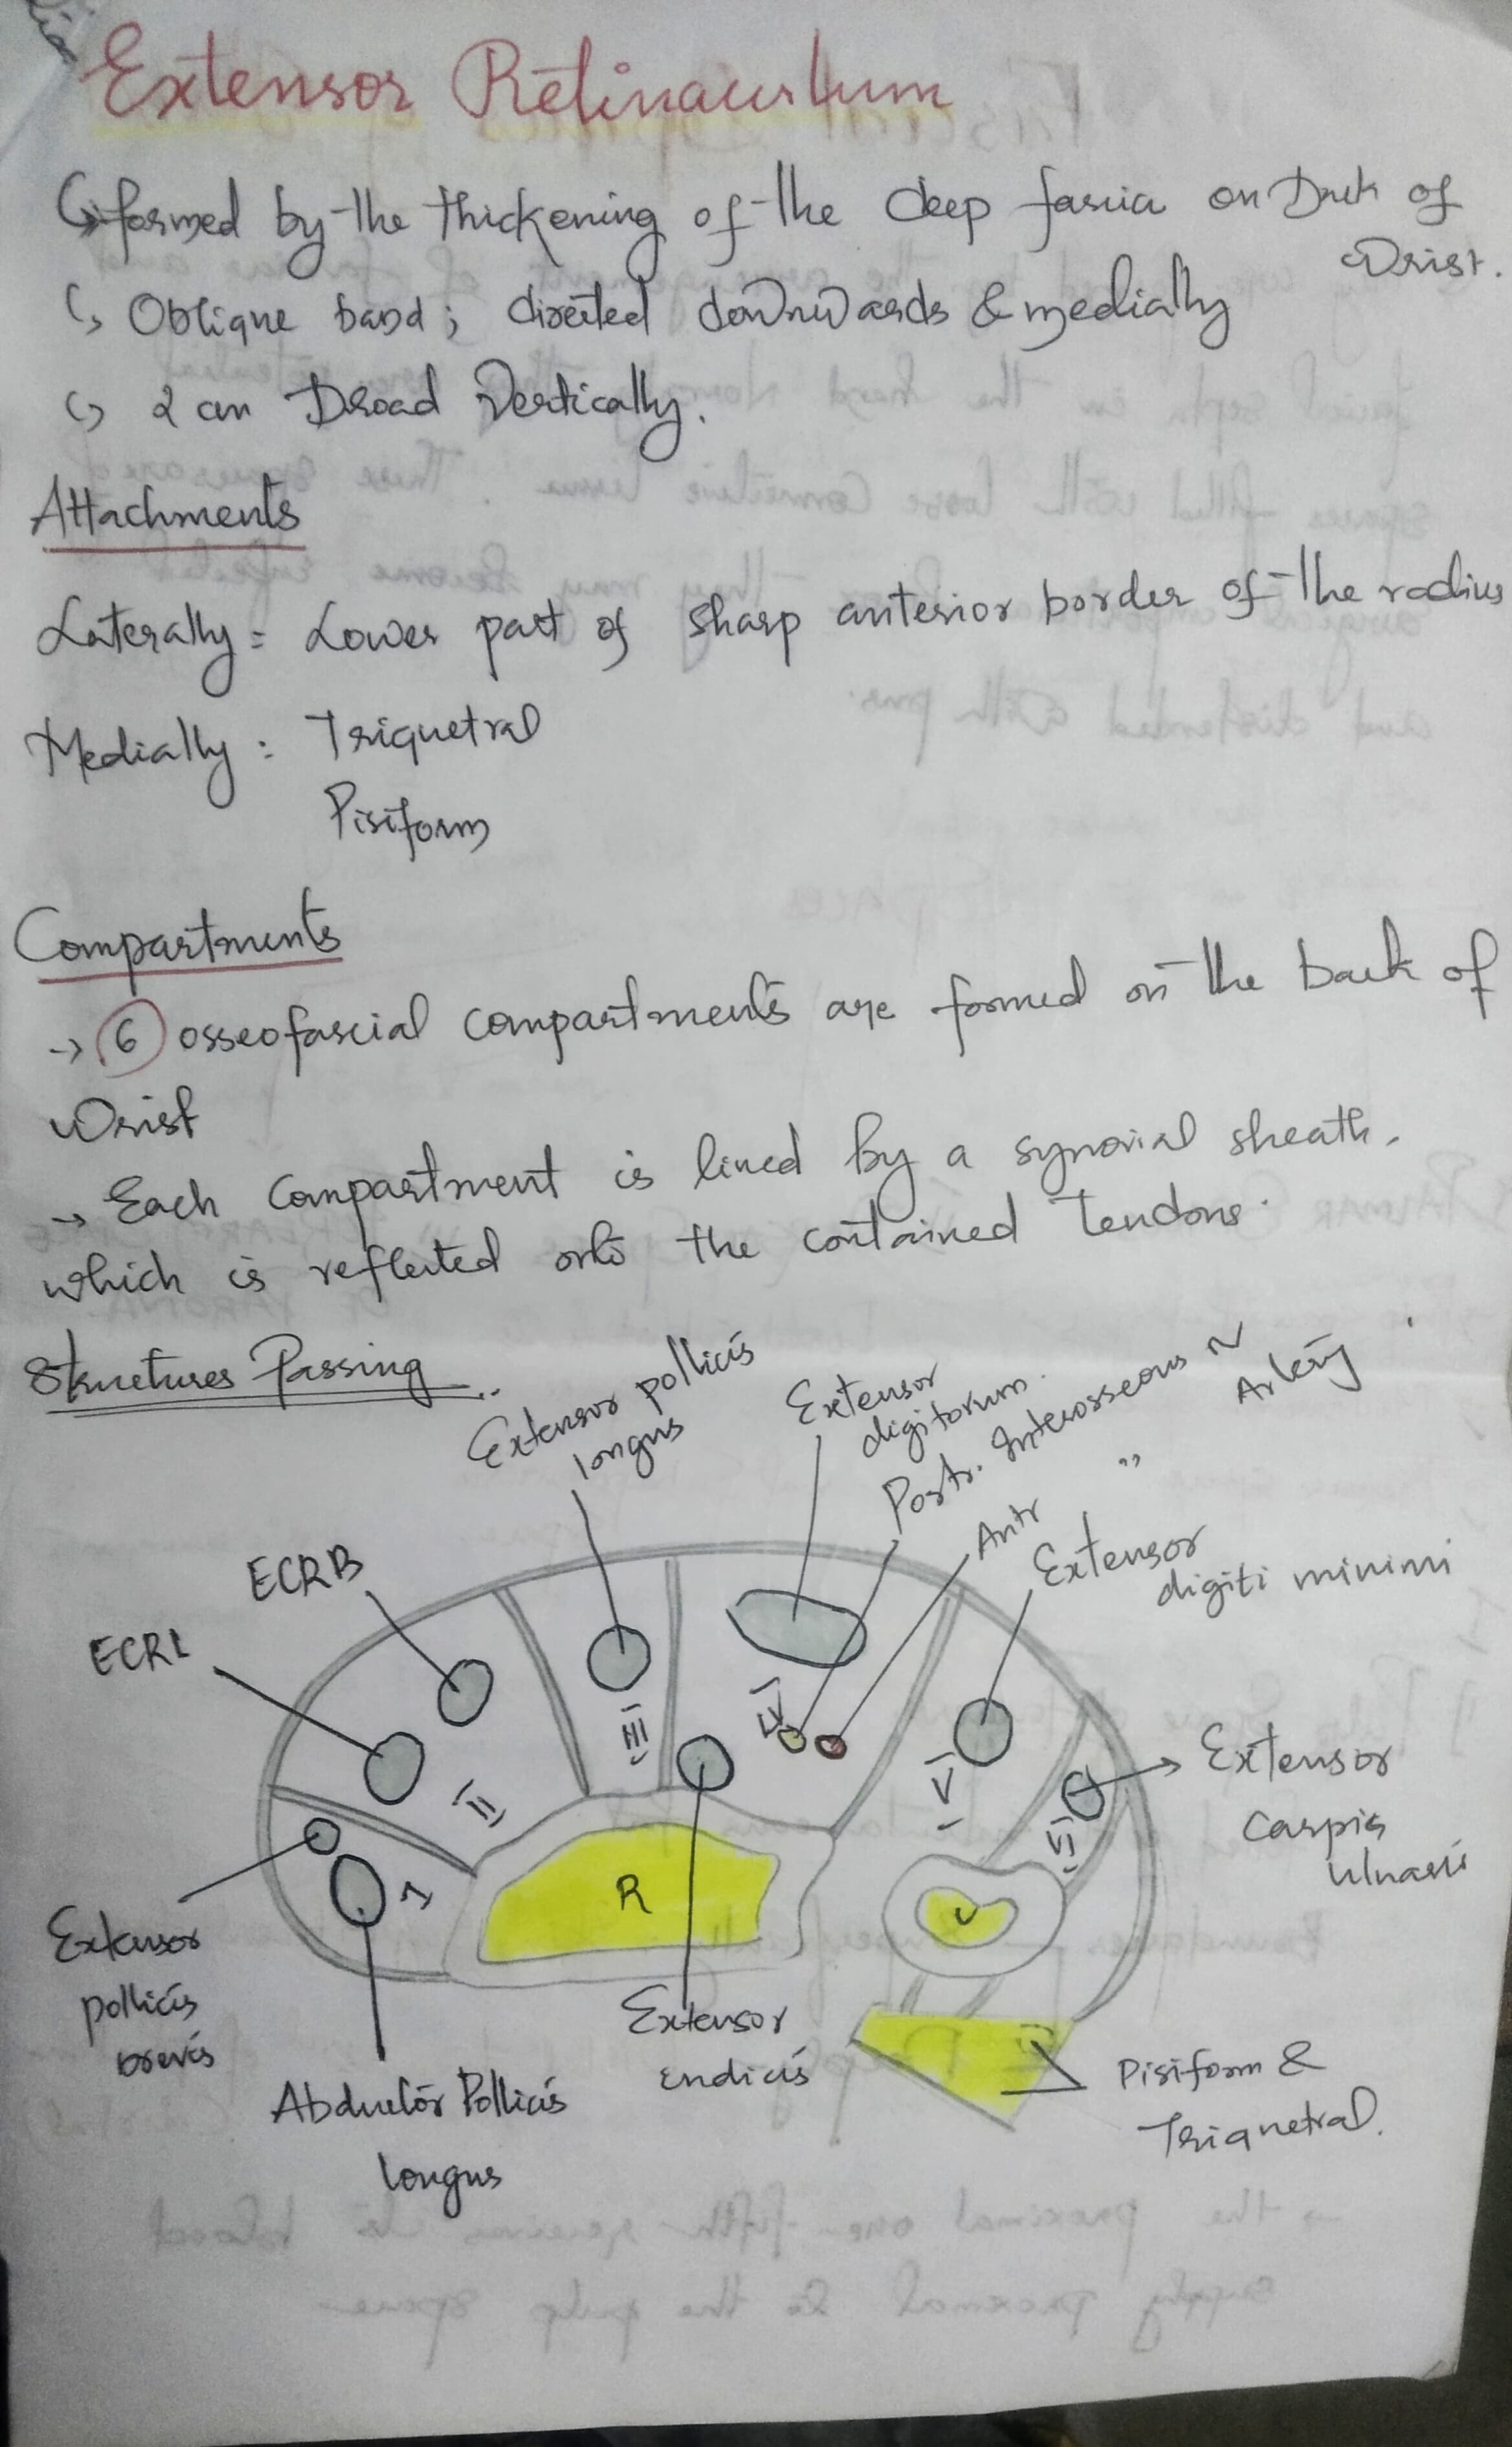 Extensor Retinaculum
formed by the thickening of the deep fascia on back of
wrist.
Oblique band; directed downwards & medially
2 cm broad vertically.
Attachments
Laterally = Lower part of sharp anterior border of the radius
Medially : Triquetral
Pisiform
Compartments
→ 6 osseofascial compartments are formed on the back of
wrist
→ Each compartment is lined by a synovial sheath.
which is reflected onto the contained tendons.
Structures Passing
Extensor pollicis
longus
Extensor
digitorum.
Postr. Interosseous N
Antr " Artery
Extensor
digiti minimi
ECRB
ECRL
III
IV
II
V
VI
I
Extensor
Carpis
Ulnaris
R
U
Extensor
pollicis
brevis
Abductor Pollicis
longus
Extensor
indicis
Pisiform &
Triquetral.